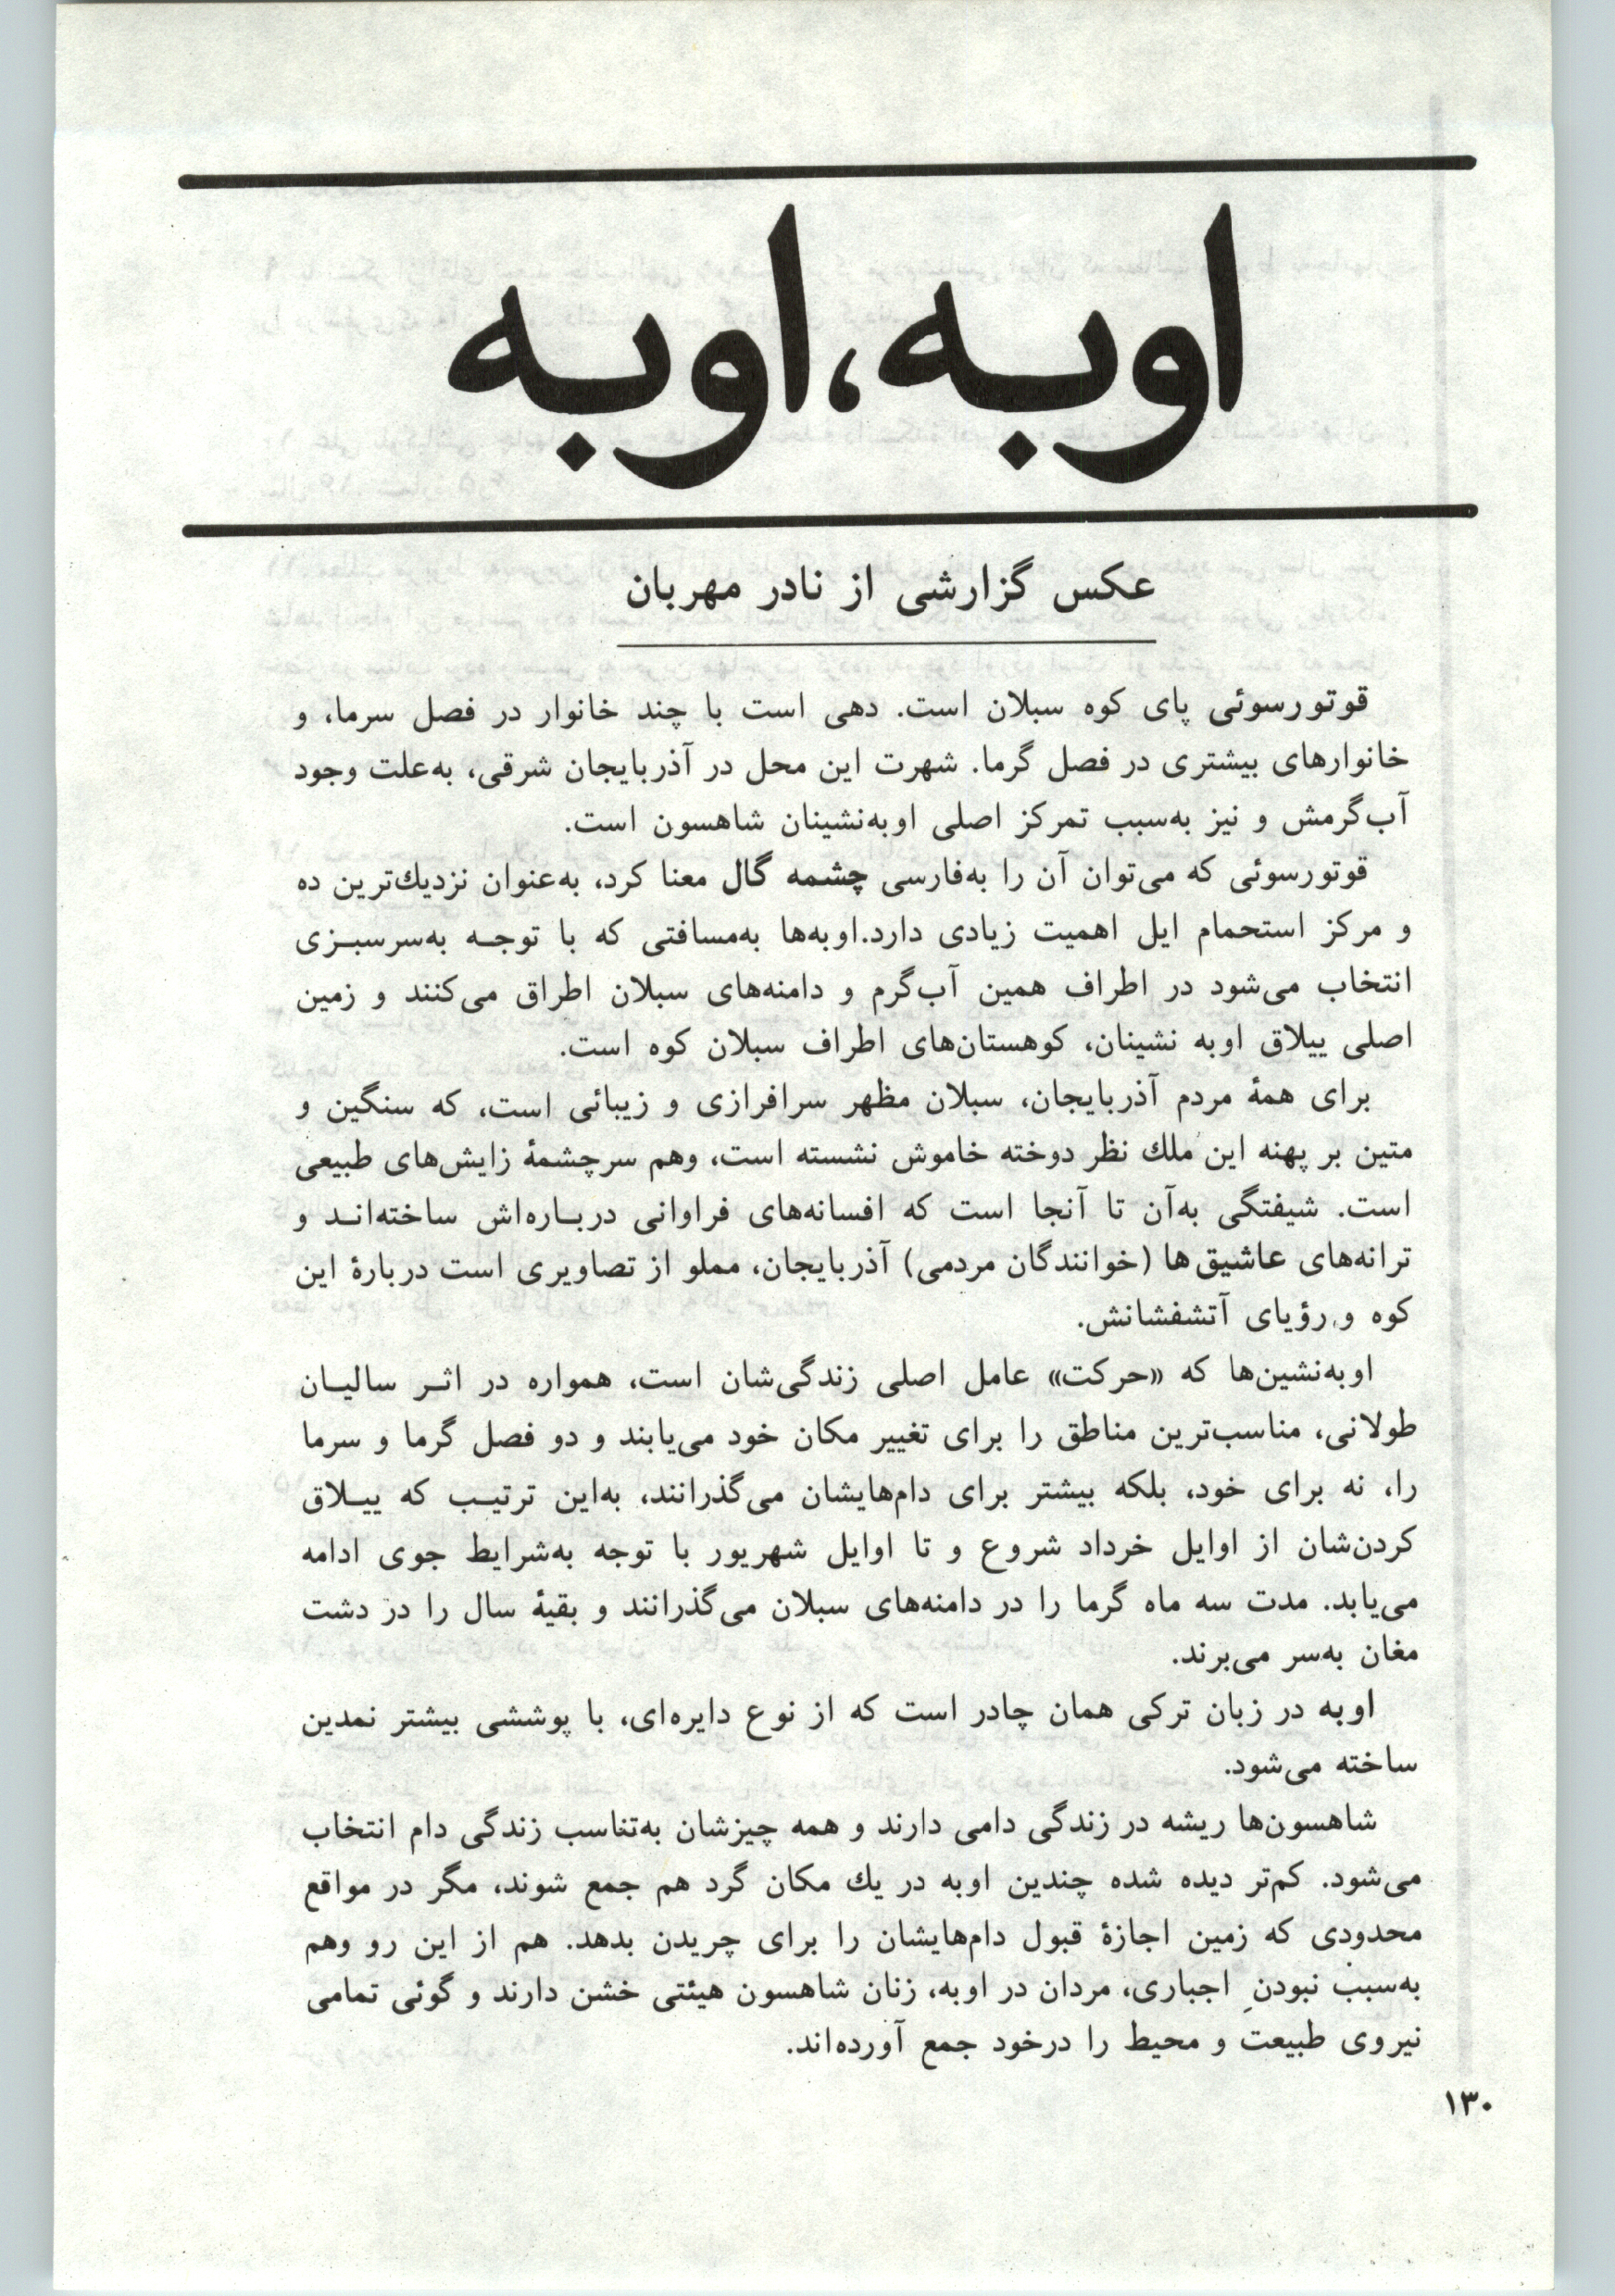 اوبه، اوبه
عکس گزارشی از نادر مهربان
قوتورسوئی پای کوه سبلان است. دهی است با چند خانوار در فصل سرما، و
خانوارهای بیشتری در فصل گرما. شهرت این محل در آذربایجان شرقی، به‌علت وجود
آب‌گرمش و نیز به‌سبب تمرکز اصلی اوبه‌نشینان شاهسون است.
قوتورسوئی که می‌توان آن را به‌فارسی چشمه گال معنا کرد، به‌عنوان نزدیك‌ترین ده
و مرکز استحمام ایل اهمیت زیادی دارد.اوبه‌ها به‌مسافتی که با توجـه به‌سرسبـزی
انتخاب می‌شود در اطراف همین آب‌گرم و دامنه‌های سبلان اطراق می‌کنند و زمین
اصلی ییلاق اوبه نشینان، کوهستان‌های اطراف سبلان کوه است.
برای همهٔ مردم آذربایجان، سبلان مظهر سرافرازی و زیبائی است، که سنگین و
متین بر پهنه این مُلك نظر دوخته خاموش نشسته است، وهم سرچشمهٔ زایش‌های طبیعی
است. شیفتگی به‌آن تا آنجا است که افسانه‌های فراوانی دربـاره‌اش ساخته‌انـد و
ترانه‌های عاشیق‌ها (خوانندگان مردمی) آذربایجان، مملو از تصاویری است دربارهٔ این
کوه و رؤیای آتشفشانش.
اوبه‌نشین‌ها که «حرکت» عامل اصلی زندگی‌شان است، همواره در اثـر سالیـان
طولانی، مناسب‌ترین مناطق را برای تغییر مکان خود می‌یابند و دو فصل گرما و سرما
را، نه برای خود، بلکه بیشتر برای دام‌هایشان می‌گذرانند، به‌این ترتیـب که ییـلاق
کردن‌شان از اوایل خرداد شروع و تا اوایل شهریور با توجه به‌شرایط جوی ادامه
می‌یابد. مدت سه ماه گرما را در دامنه‌های سبلان می‌گذرانند و بقیهٔ سال را در دشت
مغان به‌سر می‌برند.
اوبه در زبان ترکی همان چادر است که از نوع دایره‌ای، با پوششی بیشتر نمدین
ساخته می‌شود.
شاهسون‌ها ریشه در زندگی دامی دارند و همه چیزشان به‌تناسب زندگی دام انتخاب
می‌شود. کم‌تر دیده شده چندین اوبه در یك مکان گرد هم جمع شوند، مگر در مواقع
محدودی که زمین اجازهٔ قبول دام‌هایشان را برای چریدن بدهد. هم از این رو وهم
به‌سبب نبودنِ اجباری، مردان در اوبه، زنان شاهسون هیئتی خشن دارند و گوئی تمامی
نیروی طبیعت و محیط را درخود جمع آورده‌اند.
۱۳۰